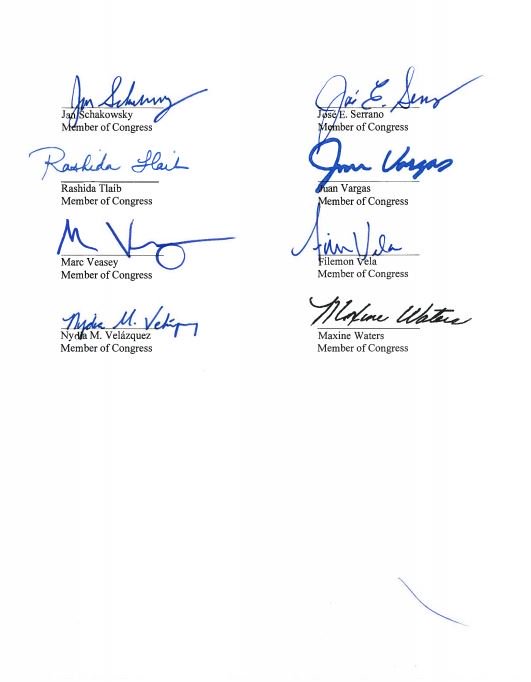 Jan Schakowsky
Jan Schakowsky
Member of Congress
José E. Serrano
José E. Serrano
Member of Congress
Rashida Tlaib
Rashida Tlaib
Member of Congress
Juan Vargas
Juan Vargas
Member of Congress
M V
Marc Veasey
Member of Congress
Filemon Vela
Member of Congress
Nydia M. Velázquez
Nydia M. Velázquez
Member of Congress
Maxine Waters
Maxine Waters
Member of Congress